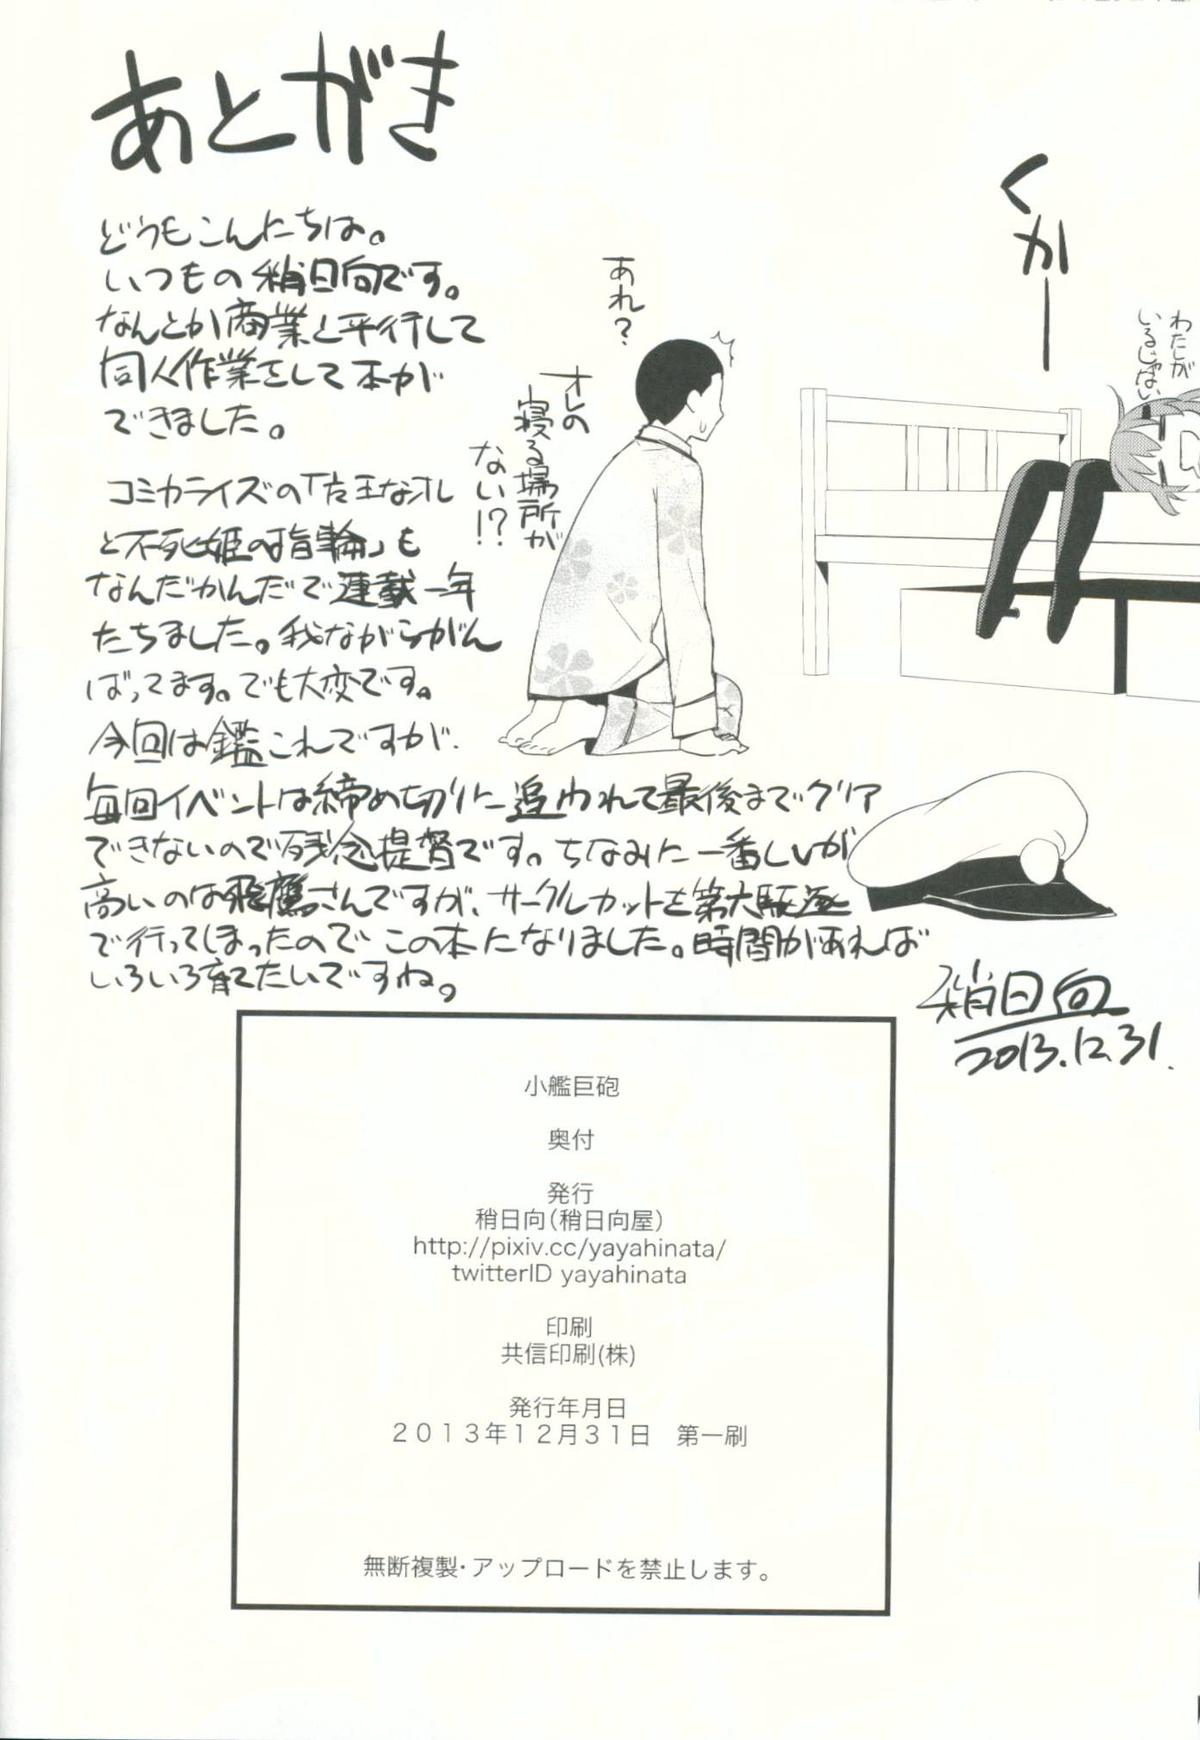 あとがき
どうもこんにちは。
いつもの稍日向です。
なんとか商業と平行して
同人作業をして本が
できました。
コミカライズの「在王なオレ
と不死姫の指輪」も
なんだかんだで連載一年
たちました。我ながらがん
ばってます。でも大変です。
今回は鑑これですが、
毎回イベントは締め切りに追われて最後までクリア
できないので残念提督です。ちなみに一番レベルが
高いのは飛鷹さんですが、サークルカットを第六駆逐
で行ってしまったのでこの本になりました。時間があれば
いろいろ育てたいですね。
稍日向
2013.12.31.
くかー
わたしが
いるじゃない
あれ?
オレの
寝る場所が
ない!?
小艦巨砲
奥付
発行
稍日向(稍日向屋)
http://pixiv.cc/yayahinata/
twitterID yayahinata
印刷
共信印刷(株)
発行年月日
2013年12月31日 第一刷
無断複製・アップロードを禁止します。